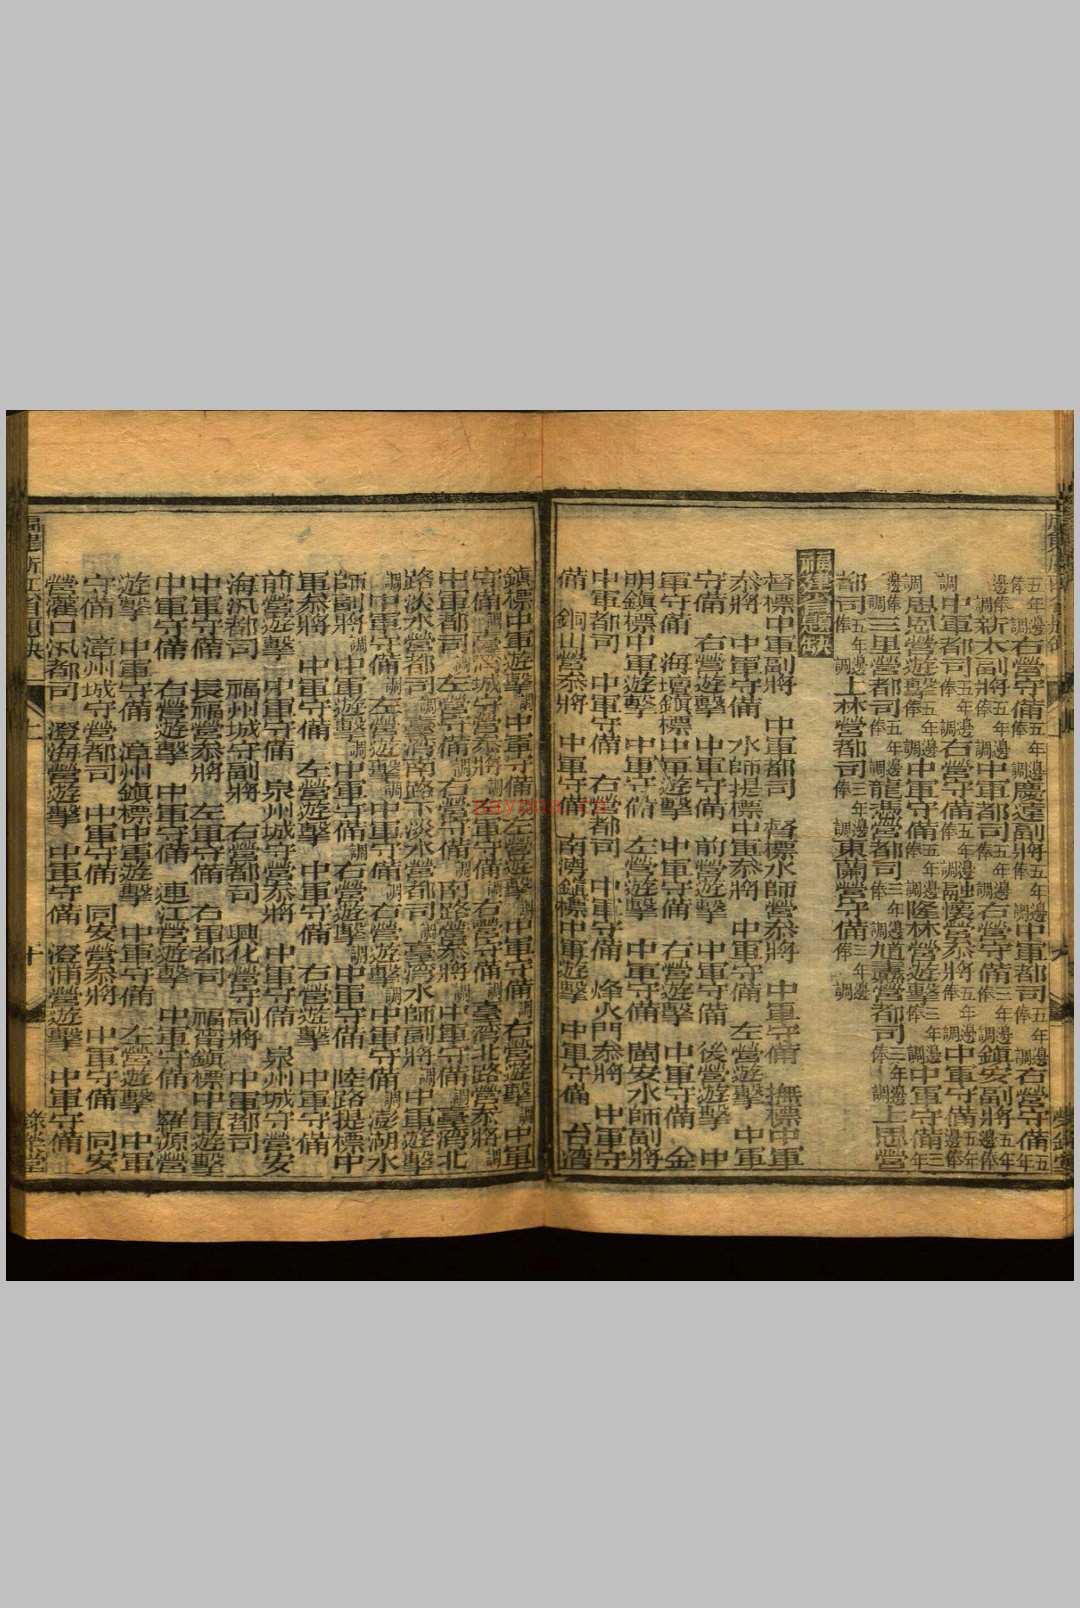 五年邊俸調右營守備五年邊俸調慶遠副將五年邊俸調中軍都司五年邊俸調右營守備五年
邊俸調新太副將五年邊俸調中軍都司五年邊俸調右營守備三年邊俸調鎮安副將五年邊俸
調中軍都司五年邊俸調右營守備五年邊俸調懷營參將五年邊俸調中軍守備三年邊俸
調思恩營遊擊五年邊俸調中軍守備五年邊俸調隆林營遊擊三年邊俸調中軍守備三年
邊俸調三里營都司五年邊俸調龍憑營都司三年邊俸調九營都司三年邊俸調上思營
都司五年邊俸調上林營都司三年邊俸調東蘭營守備三年邊俸調
福建省題缺
督標中軍副將 中軍都司 督標水師營參將 中軍守備 撫標中軍
參將 中軍守備 水師提標中軍參將 中軍守備 左營遊擊 中軍
守備 右營遊擊 中軍守備 前營遊擊 中軍守備 後營遊擊 中
軍守備 海壇鎮標中軍遊擊 中軍守備 右營遊擊 中軍守備 金
明鎮標中軍遊擊 中軍守備 左營遊擊 中軍守備 閩安水師副將
中軍都司 中軍守備 右營都司 中軍守備 烽火門參將 中軍守
備 銅山營參將 中軍守備 南澳鎮標中軍遊擊 中軍守備 台灣
鎮標中軍遊擊調中軍守備左營遊擊調中軍守備調右營遊擊調中軍
守備調臺灣城守營參將調中軍守備調右營守備調臺灣北路營參將調
中軍都司調左營守備調右營守備調南路營參將調中軍守備調臺灣北
路淡水營都司調臺灣南路下淡水營都司調臺灣水師副將調中軍遊擊
調中軍守備調左營遊擊調中軍守備調右營遊擊調中軍守備調澎湖水
師副將調中軍遊擊調中軍守備調右營遊擊調中軍守備 陸路提標中
軍參將 中軍守備 左營遊擊 中軍守備 右營遊擊 中軍守備
前營遊擊 中軍守備 泉州城守營參將 中軍守備 泉州城守營安
海汛都司 福州城守副將 右營都司 興化營守副將 中軍都司
中軍守備 長福營參將 左軍守備 右軍都司 福甯鎮標中軍遊擊
中軍守備 右營遊擊 中軍守備 連江營遊擊 中軍守備 羅源營
遊擊 中軍守備 漳州鎮標中軍遊擊 中軍守備 左營遊擊 中軍
守備 漳州城守營都司 中軍守備 同安營參將 中軍守備 同安
營灌口汛都司 澄海營遊擊 中軍守備 漳浦營遊擊 中軍守備
福建浙江省題缺
十
榮錄堂